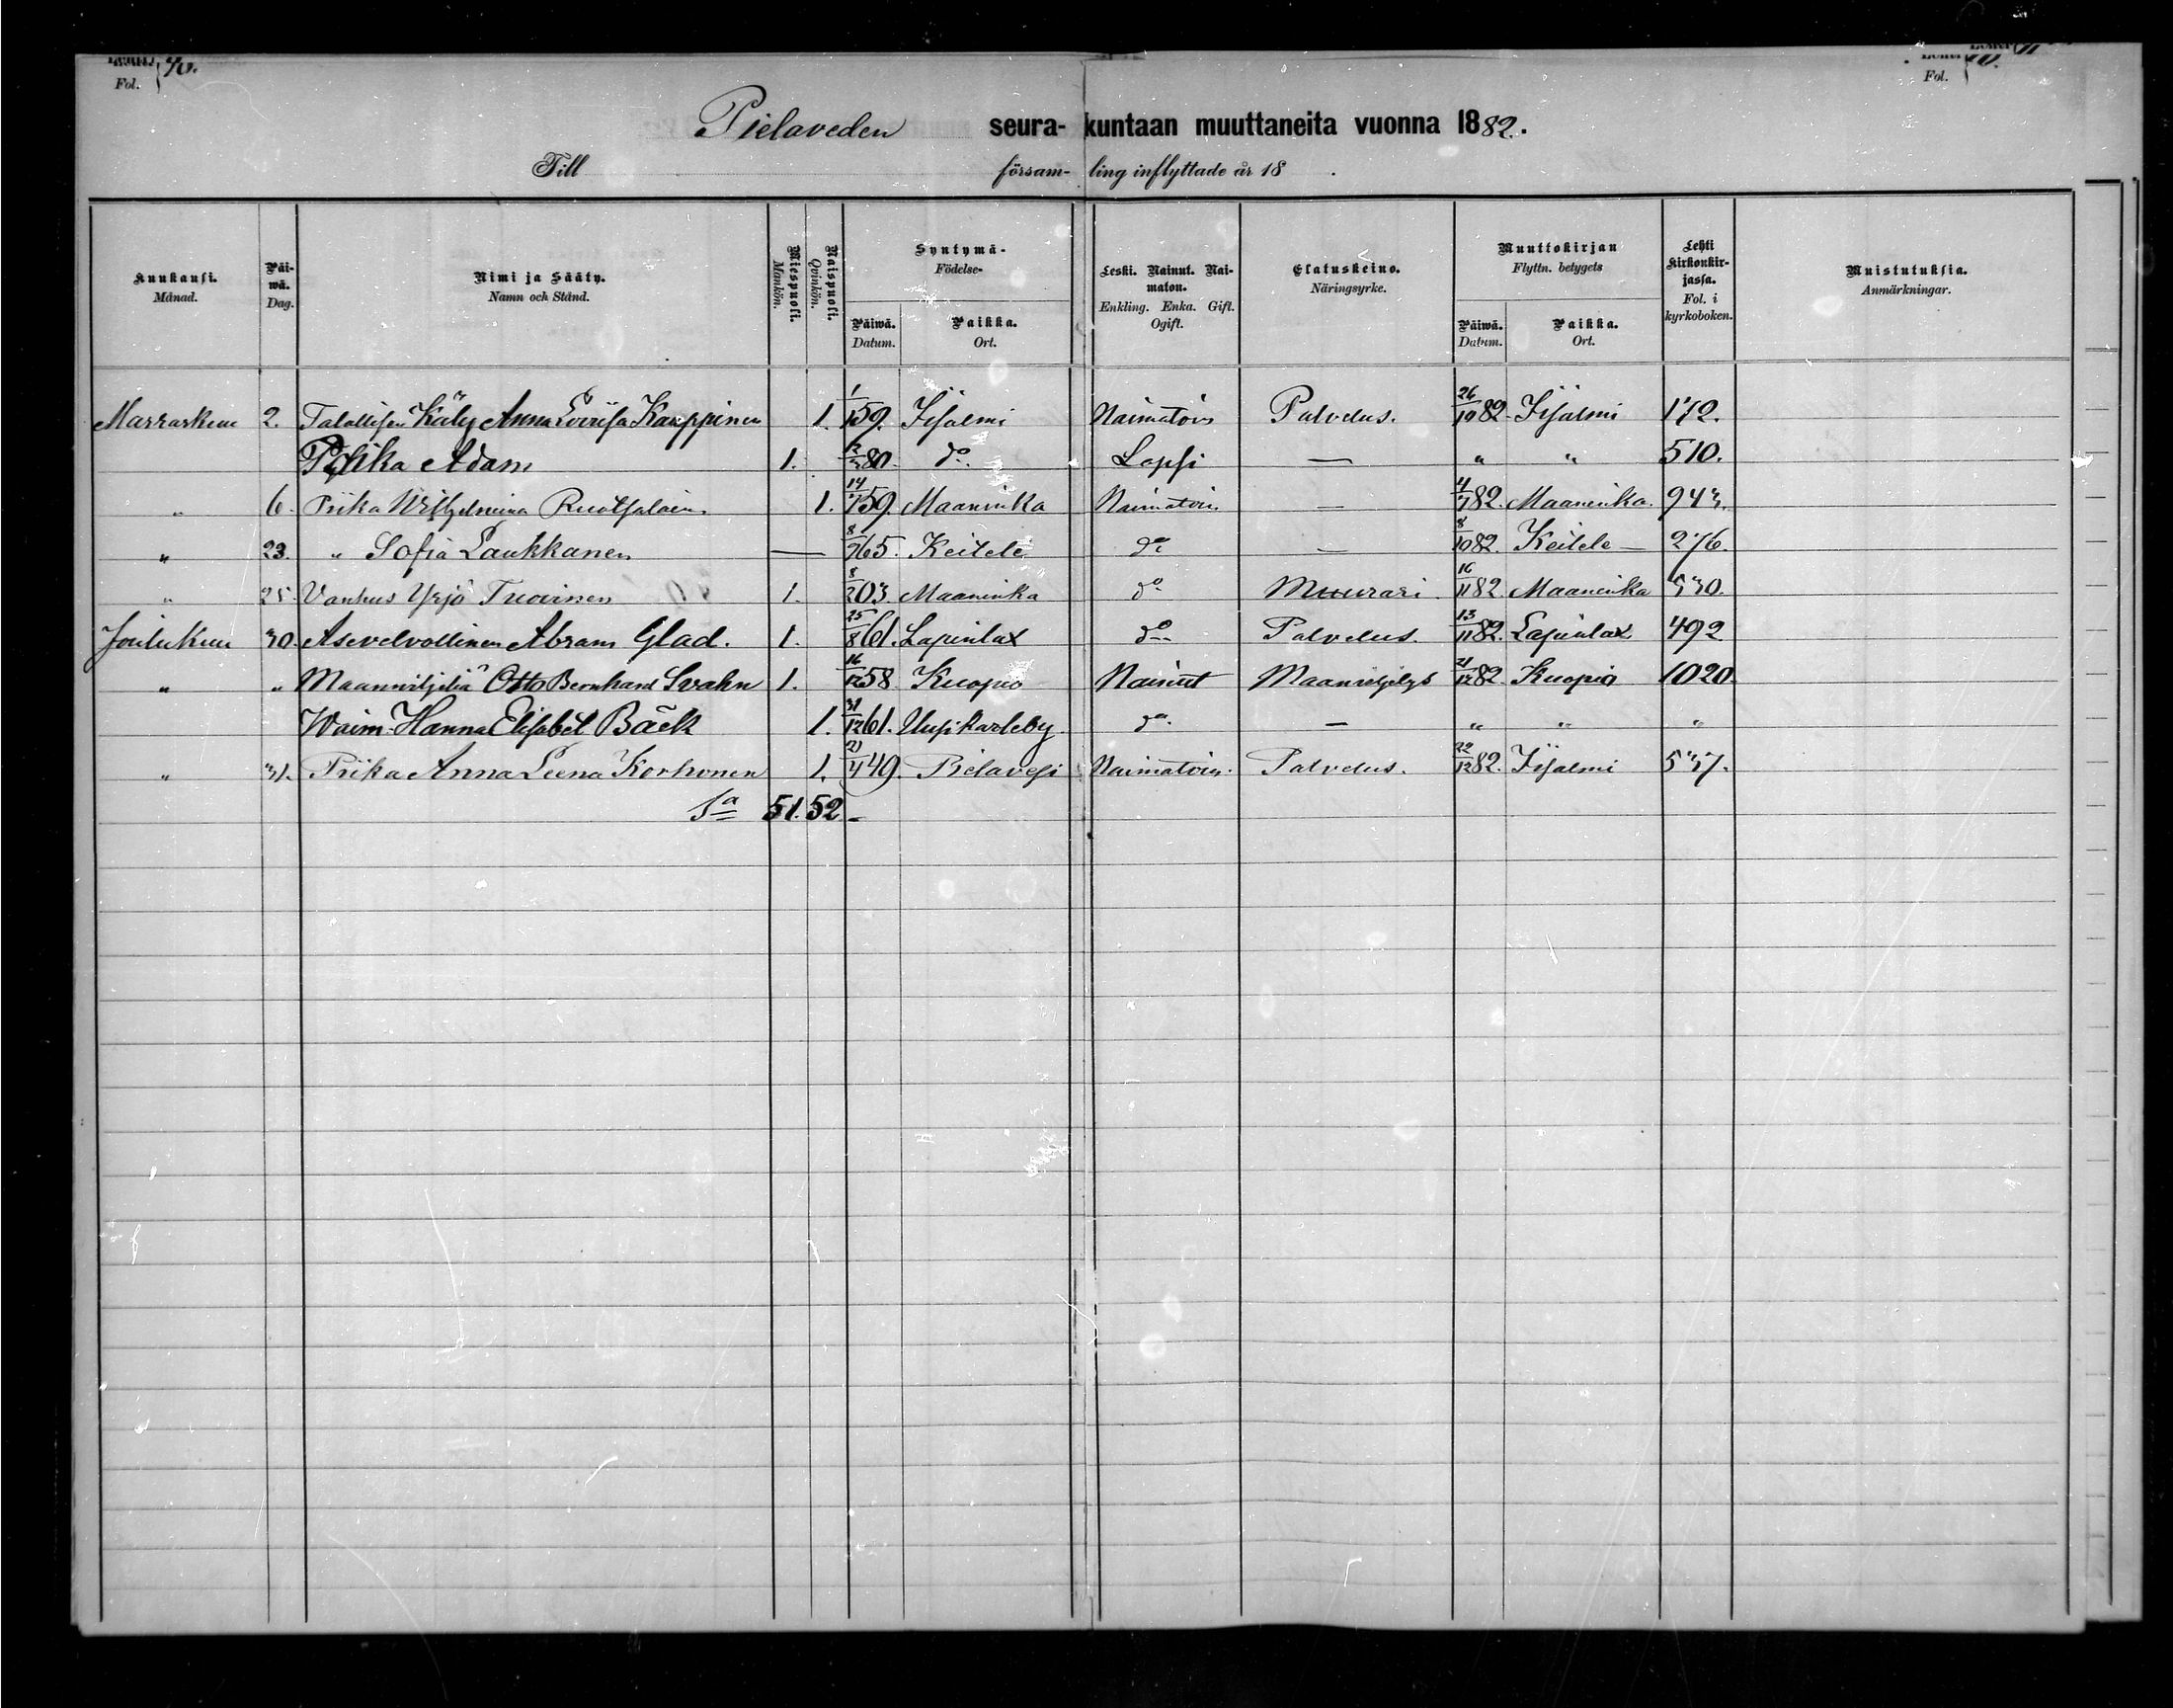 Fol. 70.
Fol. 70.
Pielaveden seura- kuntaan muuttaneita vuonna 1882.
Till försam- ling inflyttade år 18 .
Kuukausi. Månad.
Päi-wä. Dag.
Nimi ja Sääty. Namn och Stånd.
Miespuoli. Mankön.
Naispuoli. Qvinkön.
Syntymä- Födelse-
Päiwä. Datum.
Paikka. Ort.
Leski. Nainut. Nai-maton. Enkling. Enka. Gift. Ogift.
Elatuskeino. Näringsyrke.
Muuttokirjan Flyttn. betygets
Päiwä. Datum.
Paikka. Ort.
Lehti kirkonkir-jassa. Fol. i kyrkoboken.
Muistutuksia. Anmärkningar.
Marraskuu 2. Talollisen Käly Anna Lovisa Kauppinen 1. 59. Iisalmi Naimatoin Palvelus. 26/10 82. Iisalmi 172.
Poika Adam 1. 80. do. Lapsi — " " 510.
" 6. Piika Wilhelmina Ruotsalain. 1. 14/7 59. Maaninka Naimatoin — 4/7 82. Maaninka. 943.
" 23. " Sofia Laukkanen — 8/7 65. Keitele do — 8/10 82. Keitele — 276.
" 25. Vanhus Yrjö Tuovinen 1. 8/2 03. Maaninka do Muurari. 16/11 82. Maaninka 530.
Joulukuu 30. Asevelvollinen Abram Glad. 1. 25/8 61. Lapinlax do Palvelus. 13/11 82. Lapinlax 492
" " Maanviljeliä Otto Bernhard Svahn 1. 16/12 58 Kuopio Nainut Maanviljelys 21/12 82. Kuopio 1020.
Waim. Hanna Elisabet Bäck 1. 31/12 61. Uusikarleby do. — " " "
" 31. Piika Anna Leena Korhonen 1. 21/4 49. Pielavesi Naimatoin. Palvelus. 22/12 82. Iisalmi 537.
Sa 51. 52.